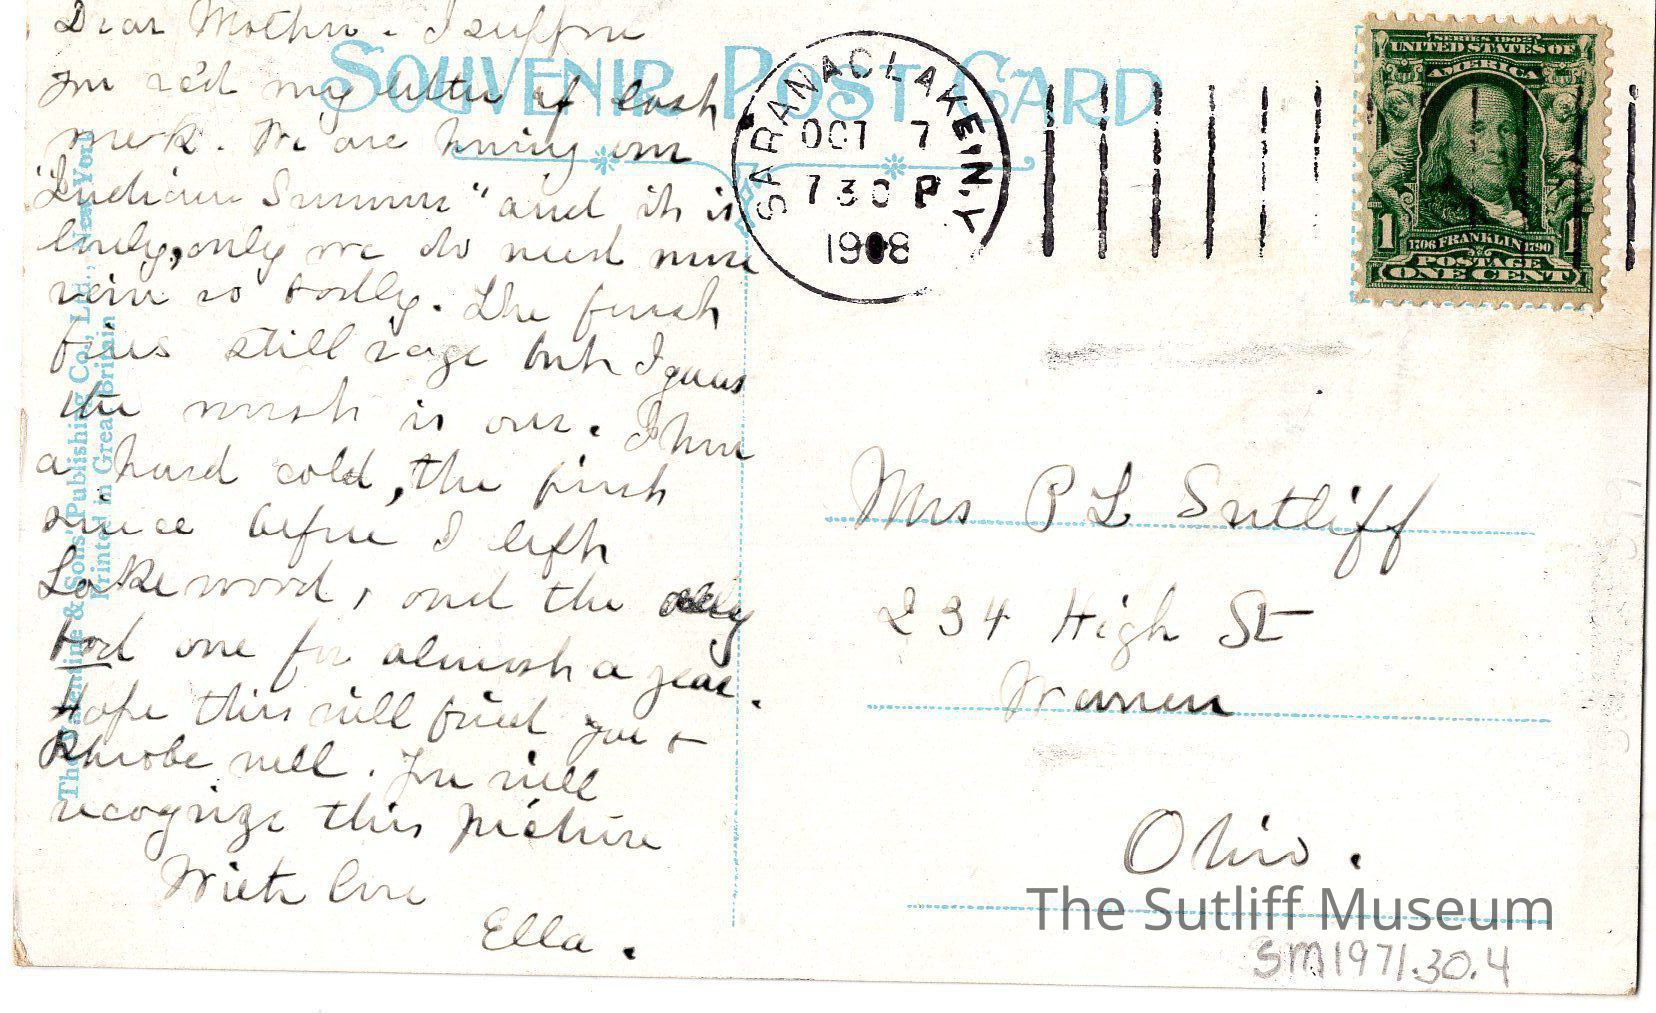 Dear Mother - I suppose
you rec'd my letter of last
week. We are having our
"Indian Summer" and it is
lovely, only we do need more
rain so badly. The forest
fires still rage but I guess
the worst is over. I have
a hard cold, the first
since before I left
Lakewood, and the only
bad one for almost a year.
Hope this will find you +
Phoebe well. You will
recognize this picture
With love
Ella.
SOUVENIR POST CARD
The Valentine & Sons' Publishing Co., Ltd., New York
Printed in Great Britain
SARANAC LAKE N.Y.
OCT 7
7 30 P
1908
SERIES 1902
UNITED STATES OF
AMERICA
1 1
1706 FRANKLIN 1790
POSTAGE
ONE CENT
Mrs P L Sutliff
234 High St
Warren
Ohio.
The Sutliff Museum
SM1971.30.4